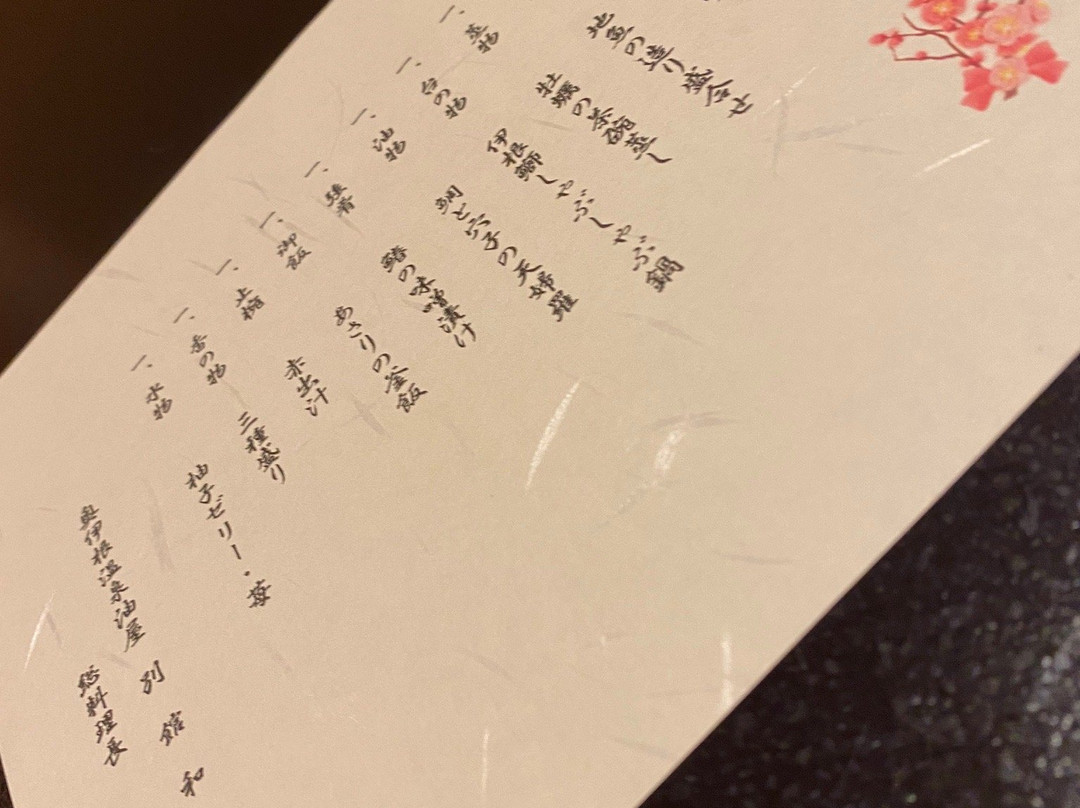 地魚の造り盛合せ
一、蒸物 牡蠣の茶碗蒸し
一、台の物 伊根鰤しゃぶしゃぶ鍋
一、油物 鯛と穴子の天婦羅
一、強肴 鰆の味噌漬け
一、御飯 あさりの釜飯
一、止椀 赤出汁
一、香の物 三種盛り
一、水物 柚子ゼリー・苺
奥伊根温泉油屋 別館 和
総料理長